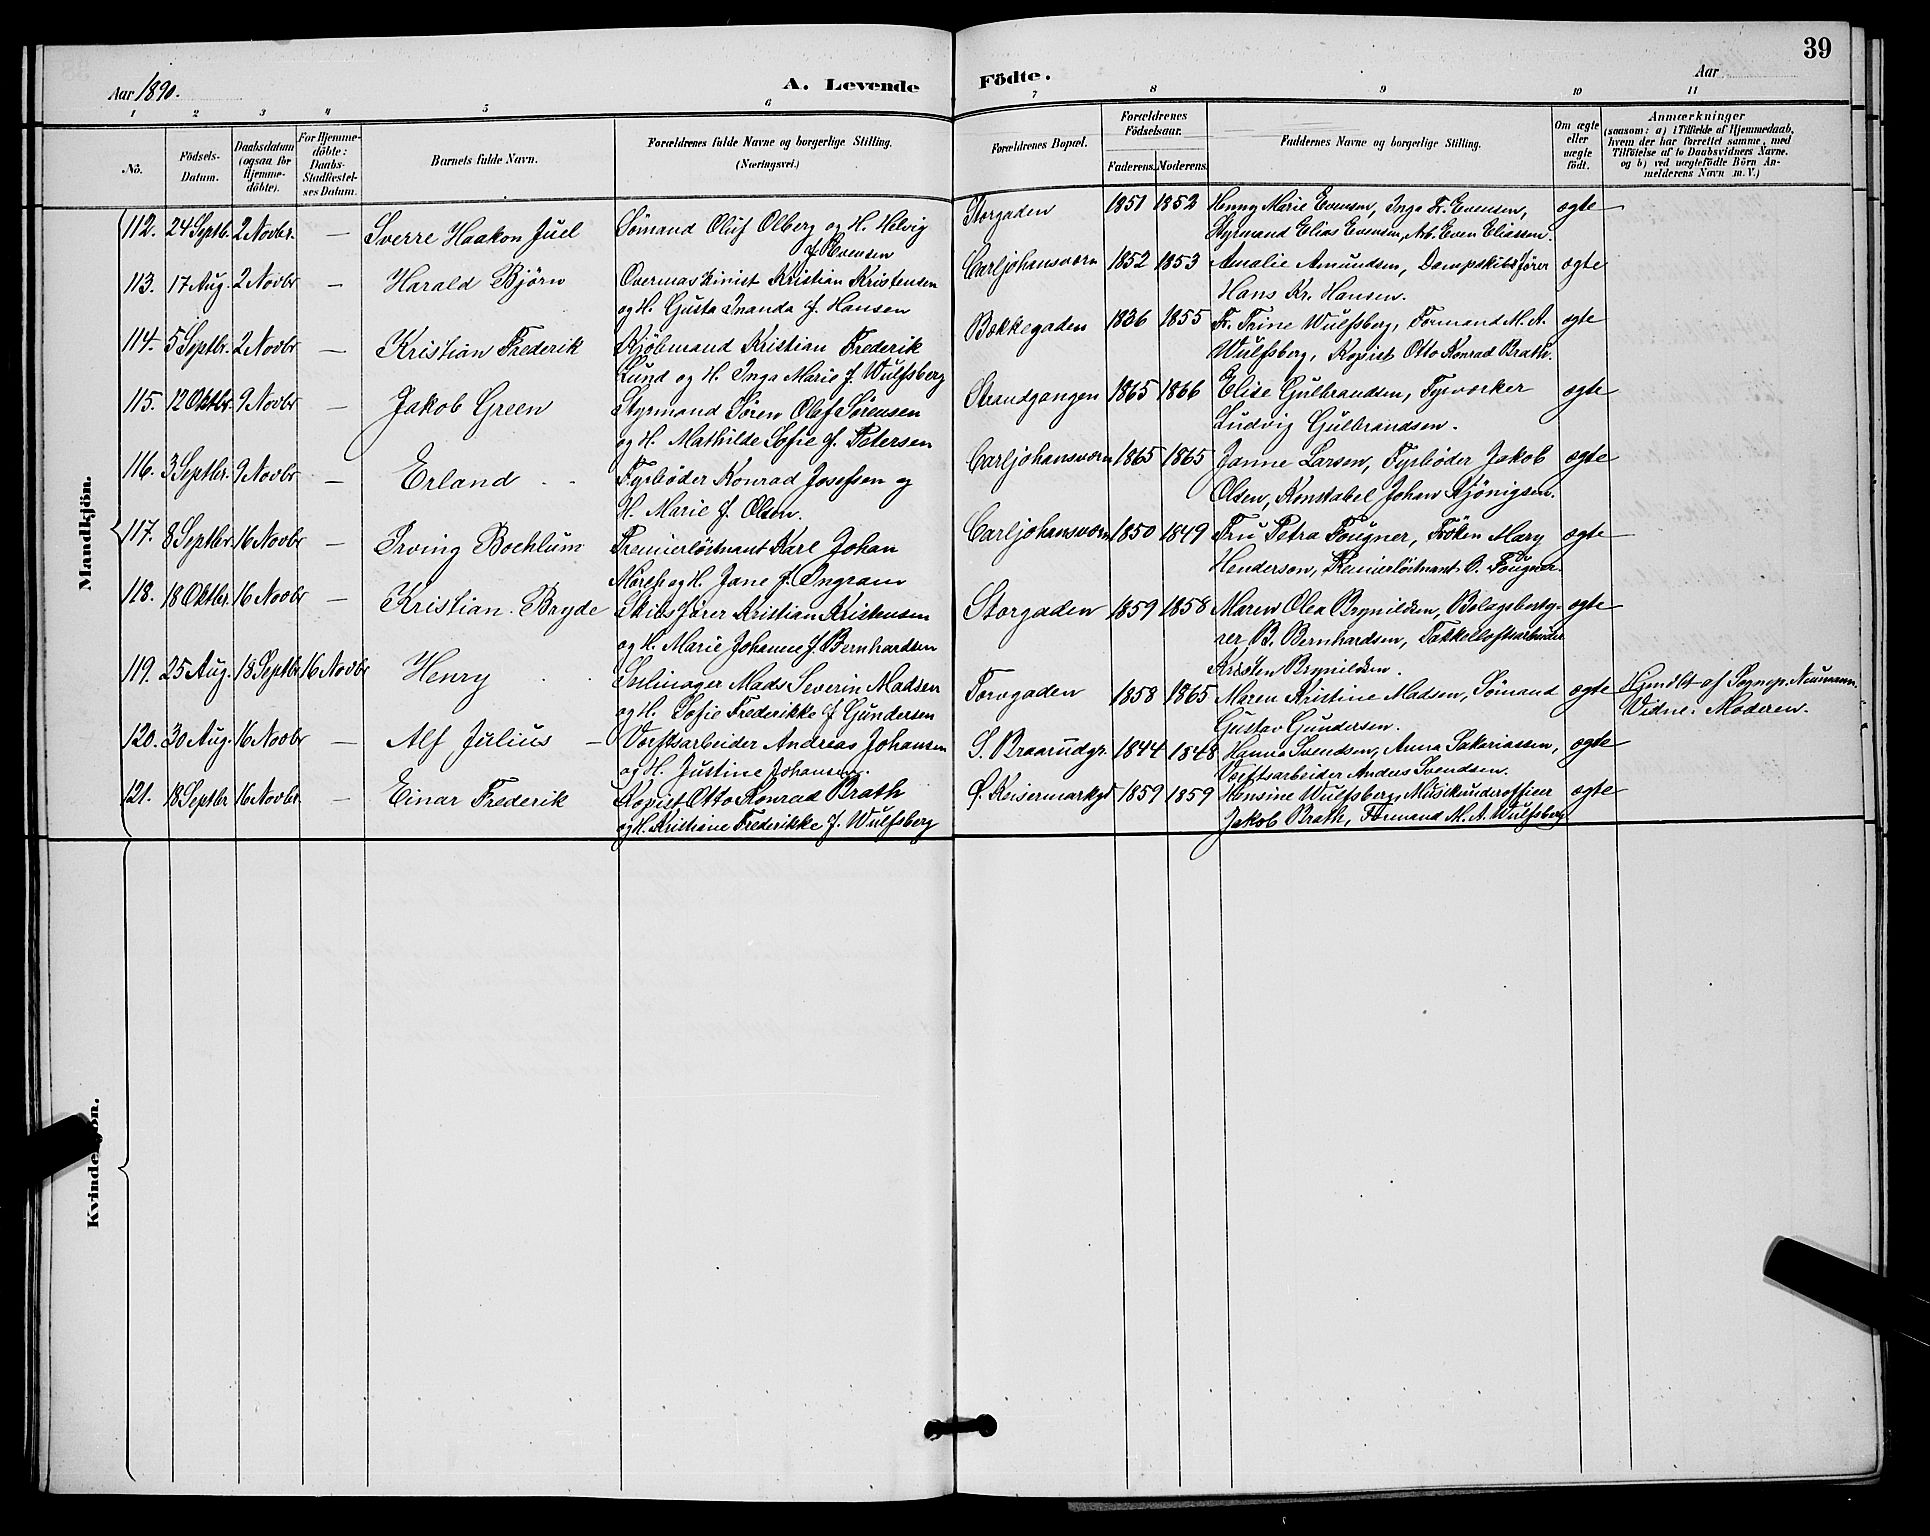 39
Aar 1890.
A. Levende Födte.
Aar
1 2 3 4 5 6 7 8 9 10 11
No.
Födsels-Datum.
Daabsdatum (ogsaa for Hjemme-döbte).
For Hjemme-döbte: Daabs-Stadfæstel-ses Datum.
Barnets fulde Navn.
Forældrenes fulde Navne og borgerlige Stilling. (Næringsvei.)
Forældrenes Bopæl.
Forældrenes Födselsaar.
Faderens. Moderens.
Faddernes Navne og borgerlige Stilling.
Om ægte eller uægte födt.
Anmærkninger
(saasom: a) i Tilfælde af Hjemmedaab,
hvem der har forrettet samme, med
Tilföielse af to Daabsvidners Navne.
og b) ved uægtefödte Börn An-
melderens Navn m. V.)
Mandkjön.
112. 24 Septb. 2 Novbr. — Sverre Haakon Juel Sømand Oluf Olberg og H. Helvig Storgaden 1851 1852 Henny Marie Evensen, Inga Fr. Evensen, ægte
f. Evensen Styrmand Elias Evensen, Arb. Even Eliassen.
113. 17 Aug. 2 Novbr — Harald Björn Overmaskinist Kristian Kristensen Carljohansværn 1852 1853 Amalie Amundsen, Dampskibsfører ægte
og H. Gusta Inanda f. Hansen Hans Kr. Hansen.
114. 5 Septbr. 2 Novbr — Kristian Frederik Kjöbmand Kristian Frederik Bækkegaden 1836 1855 Fr. Trine Wulfsberg, Formand M. A. ægte
Lund og H. Inga Marie f. Wulfsberg Wulfsberg, Kopist Otto Konrad Brath.
115. 12 Oktbr. 9 Novbr — Jakob Green Styrmand Sören Olaf Sörensen Strandgangen 1865 1866 Elise Gulbrandsen, Fyrvorker ægte
og H. Mathilde Sofie f. Petersen Ludvig Gulbrandsen.
116. 3 Septbr. 9 Novbr — Erland Fyrbøder Konrad Josefsen og Carljohansværn 1865 1865 Janne Larsen, Fyrbøder Jakob ægte
H. Marie f. Olsen. Olsen, Konstabel Johan Kjönigsen.
117. 8 Septbr 16 Novbr — Irving Bochlum Premierlöitnant Karl Johan Carljohansværn 1850 1849 Fru Petra Fougner, Fröken Mary ægte
og H. Jane f. Ingram Henderson, Premierlöitnant O. Fougner.
118. 18 Oktbr. 16 Novbr — Kristian Bryde Skibsfører Kristian Kristensen Storgaden 1859 1858 Maren Olea Brynildsen, Bolagsbesty- ægte
og H. Marie Johanne f. Bernhardsen rer B. Bernhardsen, Takkelloftsarbeider
Kristen Brynildsen.
119. 25 Aug. 18 Septbr 16 Novbr Henry Seilmager Mads Severin Madsen Torvgaden 1858 1865 Maren Kristine Madsen, Sømand ægte Hjmdbt af Sognepr. Neumann.
og H. Sofie Frederikke f. Gundersen Gustav Gundersen. Vidne: Moderen.
120. 30 Aug. 16 Novbr — Alf Julius Værftsarbeider Andreas Johansen S. Braarudgt. 1844 1848 Hanna Svendsen, Anna Sakariassen, ægte
og H. Justine Johansen. Værftsarbeider Anders Svendsen.
121. 18 Septbr 16 Novbr. — Einar Frederik Kopist Otto Konrad Brath Ø. Keisermarkgt 1859 1859 Hensine Wulfsberg, Musikunderofficer ægte
og H. Kristiane Frederikke f. Wulfsberg Jakob Brath, Formand M. A. Wulfsberg